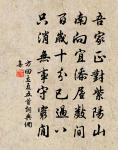 吾家正對紫陽山
南向宜添屋數間
百歲十分已過八
只消無事守窮閻
方回至直五首與偶